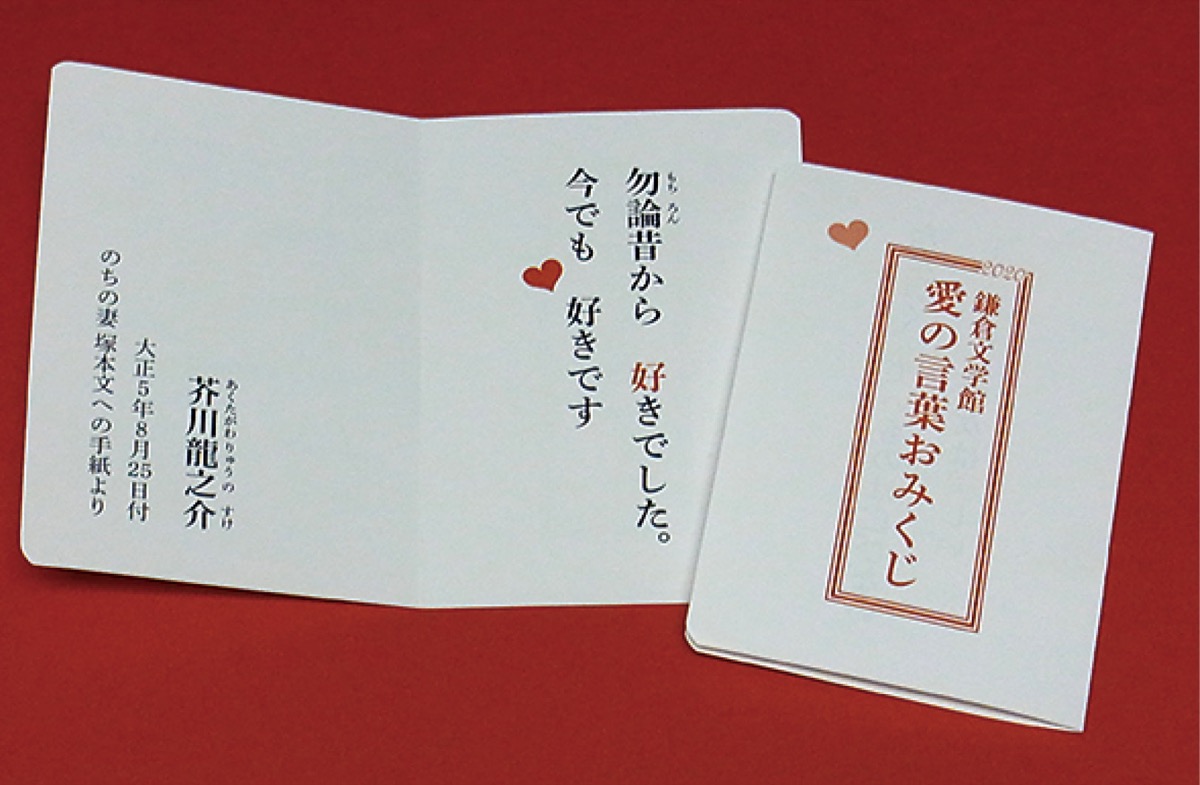 勿論昔から　好きでした。
今でも　好きです
芥川龍之介
あくたがわりゅうのすけ
もちろん
大正5年8月25日付
のちの妻 塚本文への手紙より
2020
鎌倉文学館
愛の言葉おみくじ